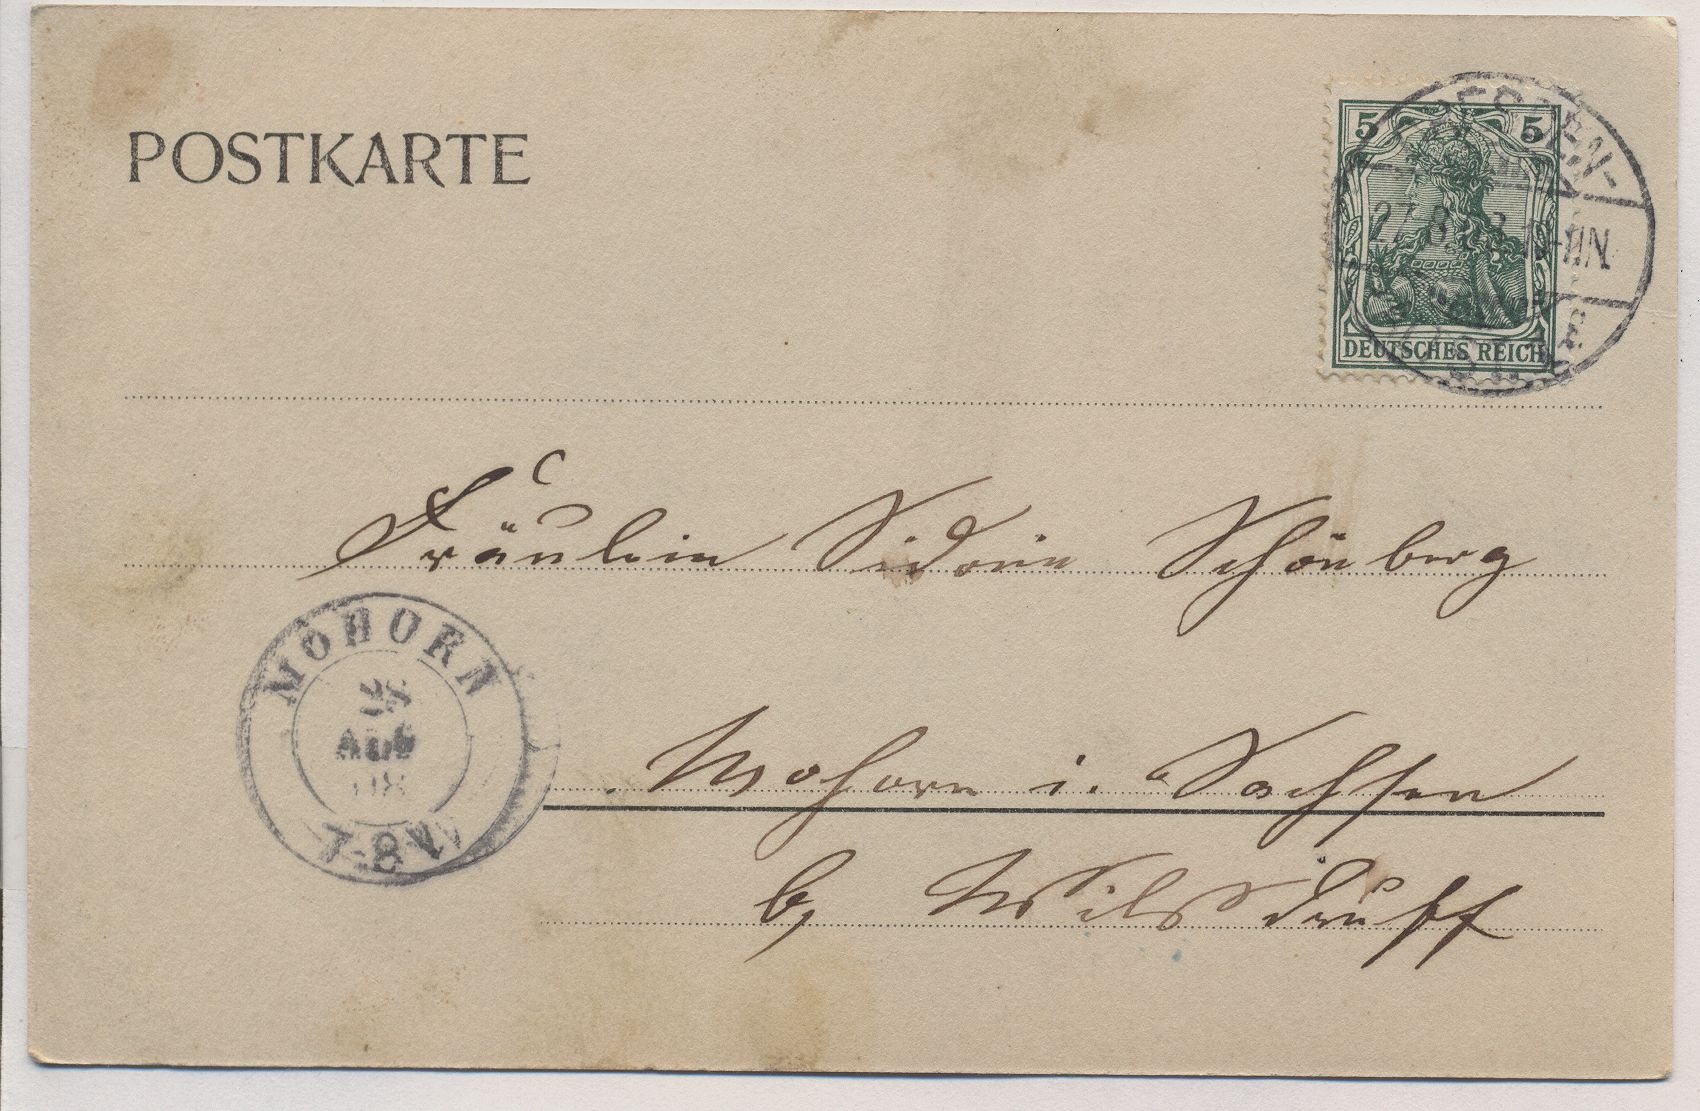 POSTKARTE
5 5
DEUTSCHES REICH
DRESDEN-
27.8. 8 10-11N.
Fräulein Sidonie Schönberg
MOHORN
28
AUG
08
7-8V
Mohorn i. Sachsen
b, Wilsdruff